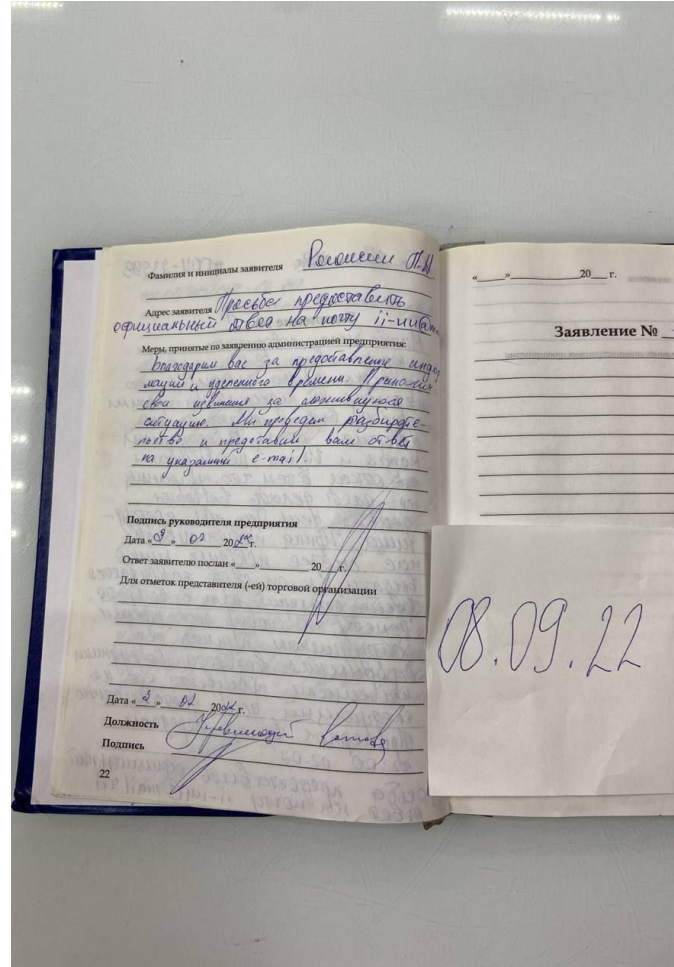 Фамилия и инициалы заявителя
Адрес заявителя Просьба предоставить
официальный ответ на почту ii-nu@m
Меры, принятые по заявлению администрацией предприятия:
Благодарим вас за предоставление инфор
мации и уделенного времени. Приносим
свои извинения за сложившуюся
ситуацию. Мы проведем разбирате-
льство и предоставим вам ответ
на указанный e-mail.
Подпись руководителя предприятия
Дата «3» 02 2022 г.
Ответ заявителю послан «___»___________20___г.
Для отметок представителя (-ей) торговой организации
Дата «3» 02 2022 г.
Должность Управляющий
Подпись
22
«____»____________20___ г.
Заявление №
08.09.22